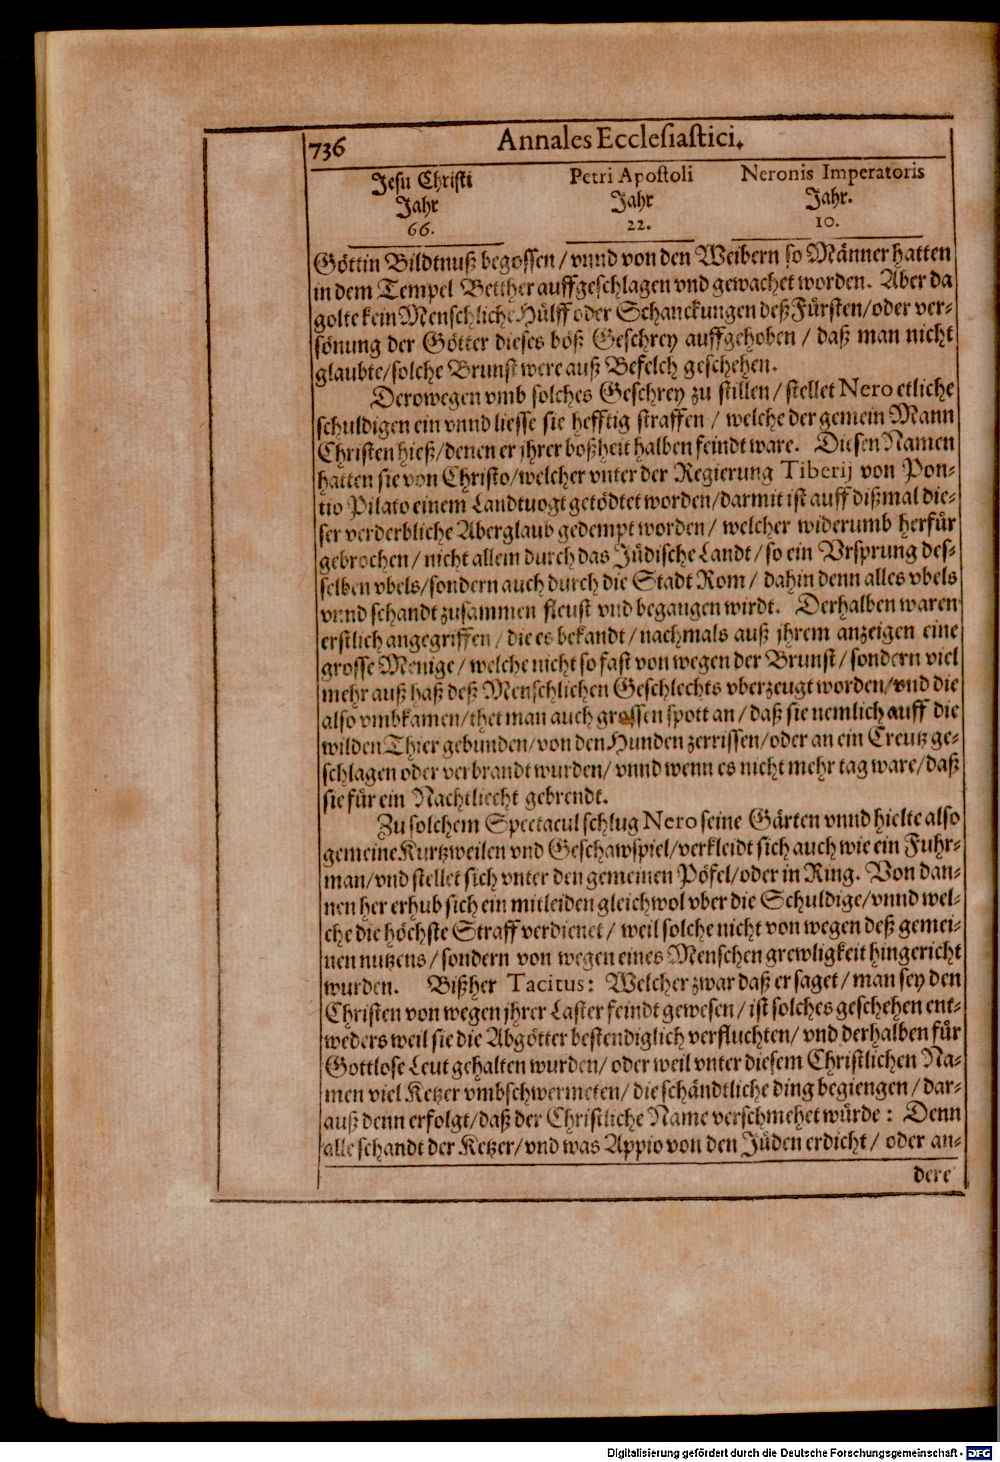 736
Annales Ecclesiastici.
Jesu Christi
Jahr
66.
Petri Apostoli
Jahr
22.
Neronis Imperatoris
Jahr.
10.
Göttin Bildtnuß begossen / vnnd von den Weibern so Männer hatten
in dem Tempel Betther auffgeschlagen vnd gewachet worden. Aber da
golte kein Menschliche Hülff oder Schanckungen deß Fürsten/oder ver-
sönung der Götter dieses böß Geschrey auffgehoben / daß man nicht
glaubte/solche Brunst were auß Befelch geschehen.
Derowegen vmb solches Geschrey zu stillen / stellet Nero etliche
schuldigen ein vnnd liesse sie hefftig straffen / welche der gemein Mann
Christen hieß/denen er jhrer boßheit halben feindt ware. Diesen Namen
hatten sie von Christo/welcher vnter der Regierung Tiberij von Pon-
tio Pilato einem Landtuogt getödtet worden/darmit ist auff dißmal die-
ser verderbliche Aberglaub gedempt worden / welcher widerumb herfür
gebrochen / nicht allein durch das Jüdische Landt / so ein Vrsprung des-
selben vbels/sondern auch durch die Stadt Rom / dahin denn alles vbels
vnnd schandt zusammen fleust vnd begangen wirdt. Derhalben waren
erstlich angegriffen / die es bekandt / nachmals auß jhrem anzeigen eine
grosse Menige / welche nicht so fast von wegen der Brunst / sondern viel
mehr auß haß deß Menschlichen Geschlechts vberzeugt worden/vnd die
also vmbkamen/thet man auch grossen spott an / daß sie nemlich auff die
wilden Thier gebunden/von den Hunden zerrissen/oder an ein Creutz ge-
schlagen oder verbrandt wurden/ vnnd wenn es nicht mehr tag ware/daß
sie für ein Nachtliecht gebrendt.
Zu solchem Spectacul schlug Nero seine Gärten vnnd hielte also
gemeine Kurtzweilen vnd Geschawspiel/verkleidt sich auch wie ein Fuhr-
man/vnd stellet sich vnter den gemeinen Pöfel/oder in Ring. Von dan-
nen her erhub sich ein mitleiden gleichwol vber die Schuldige/vnnd wel-
che die höchste Straff verdienet / weil solche nicht von wegen deß gemei-
nen nutzens / sondern von wegen eines Menschen grewligkeit hingericht
wurden. Bißher Tacitus: Welcher zwar daß er saget / man sey den
Christen von wegen jhrer Laster feindt gewesen / ist solches geschehen ent-
weders weil sie die Abgötter bestendiglich verfluchten/ vnd derhalben für
Gottlose Leut gehalten wurden/ oder weil vnter diesem Christlichen Na-
men viel Ketzer vmbschwermeten/ die schändtliche ding begiengen / dar-
auß denn erfolgt/daß der Christliche Name verschmehet würde : Denn
alle schandt der Ketzer/vnd was Appio von den Jüden erdicht / oder an-
dere
Digitalisierung gefördert durch die Deutsche Forschungsgemeinschaft - DFG